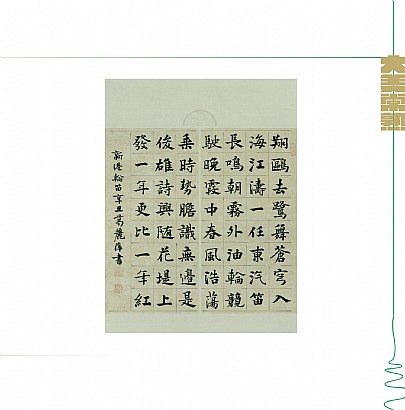 翔鷗去鷺舞蒼穹入
海江濤一任東汽笛
長鳴朝霧外油輪競
駛晚霞中春風浩蕩
乘時勢膽識無邊是
俊雄詩興随花堤上
發一年更比一年紅
新港船笛辛丑葛麗萍書